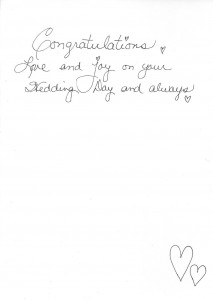 Congratulations
Love and Joy on your
Wedding Day and always